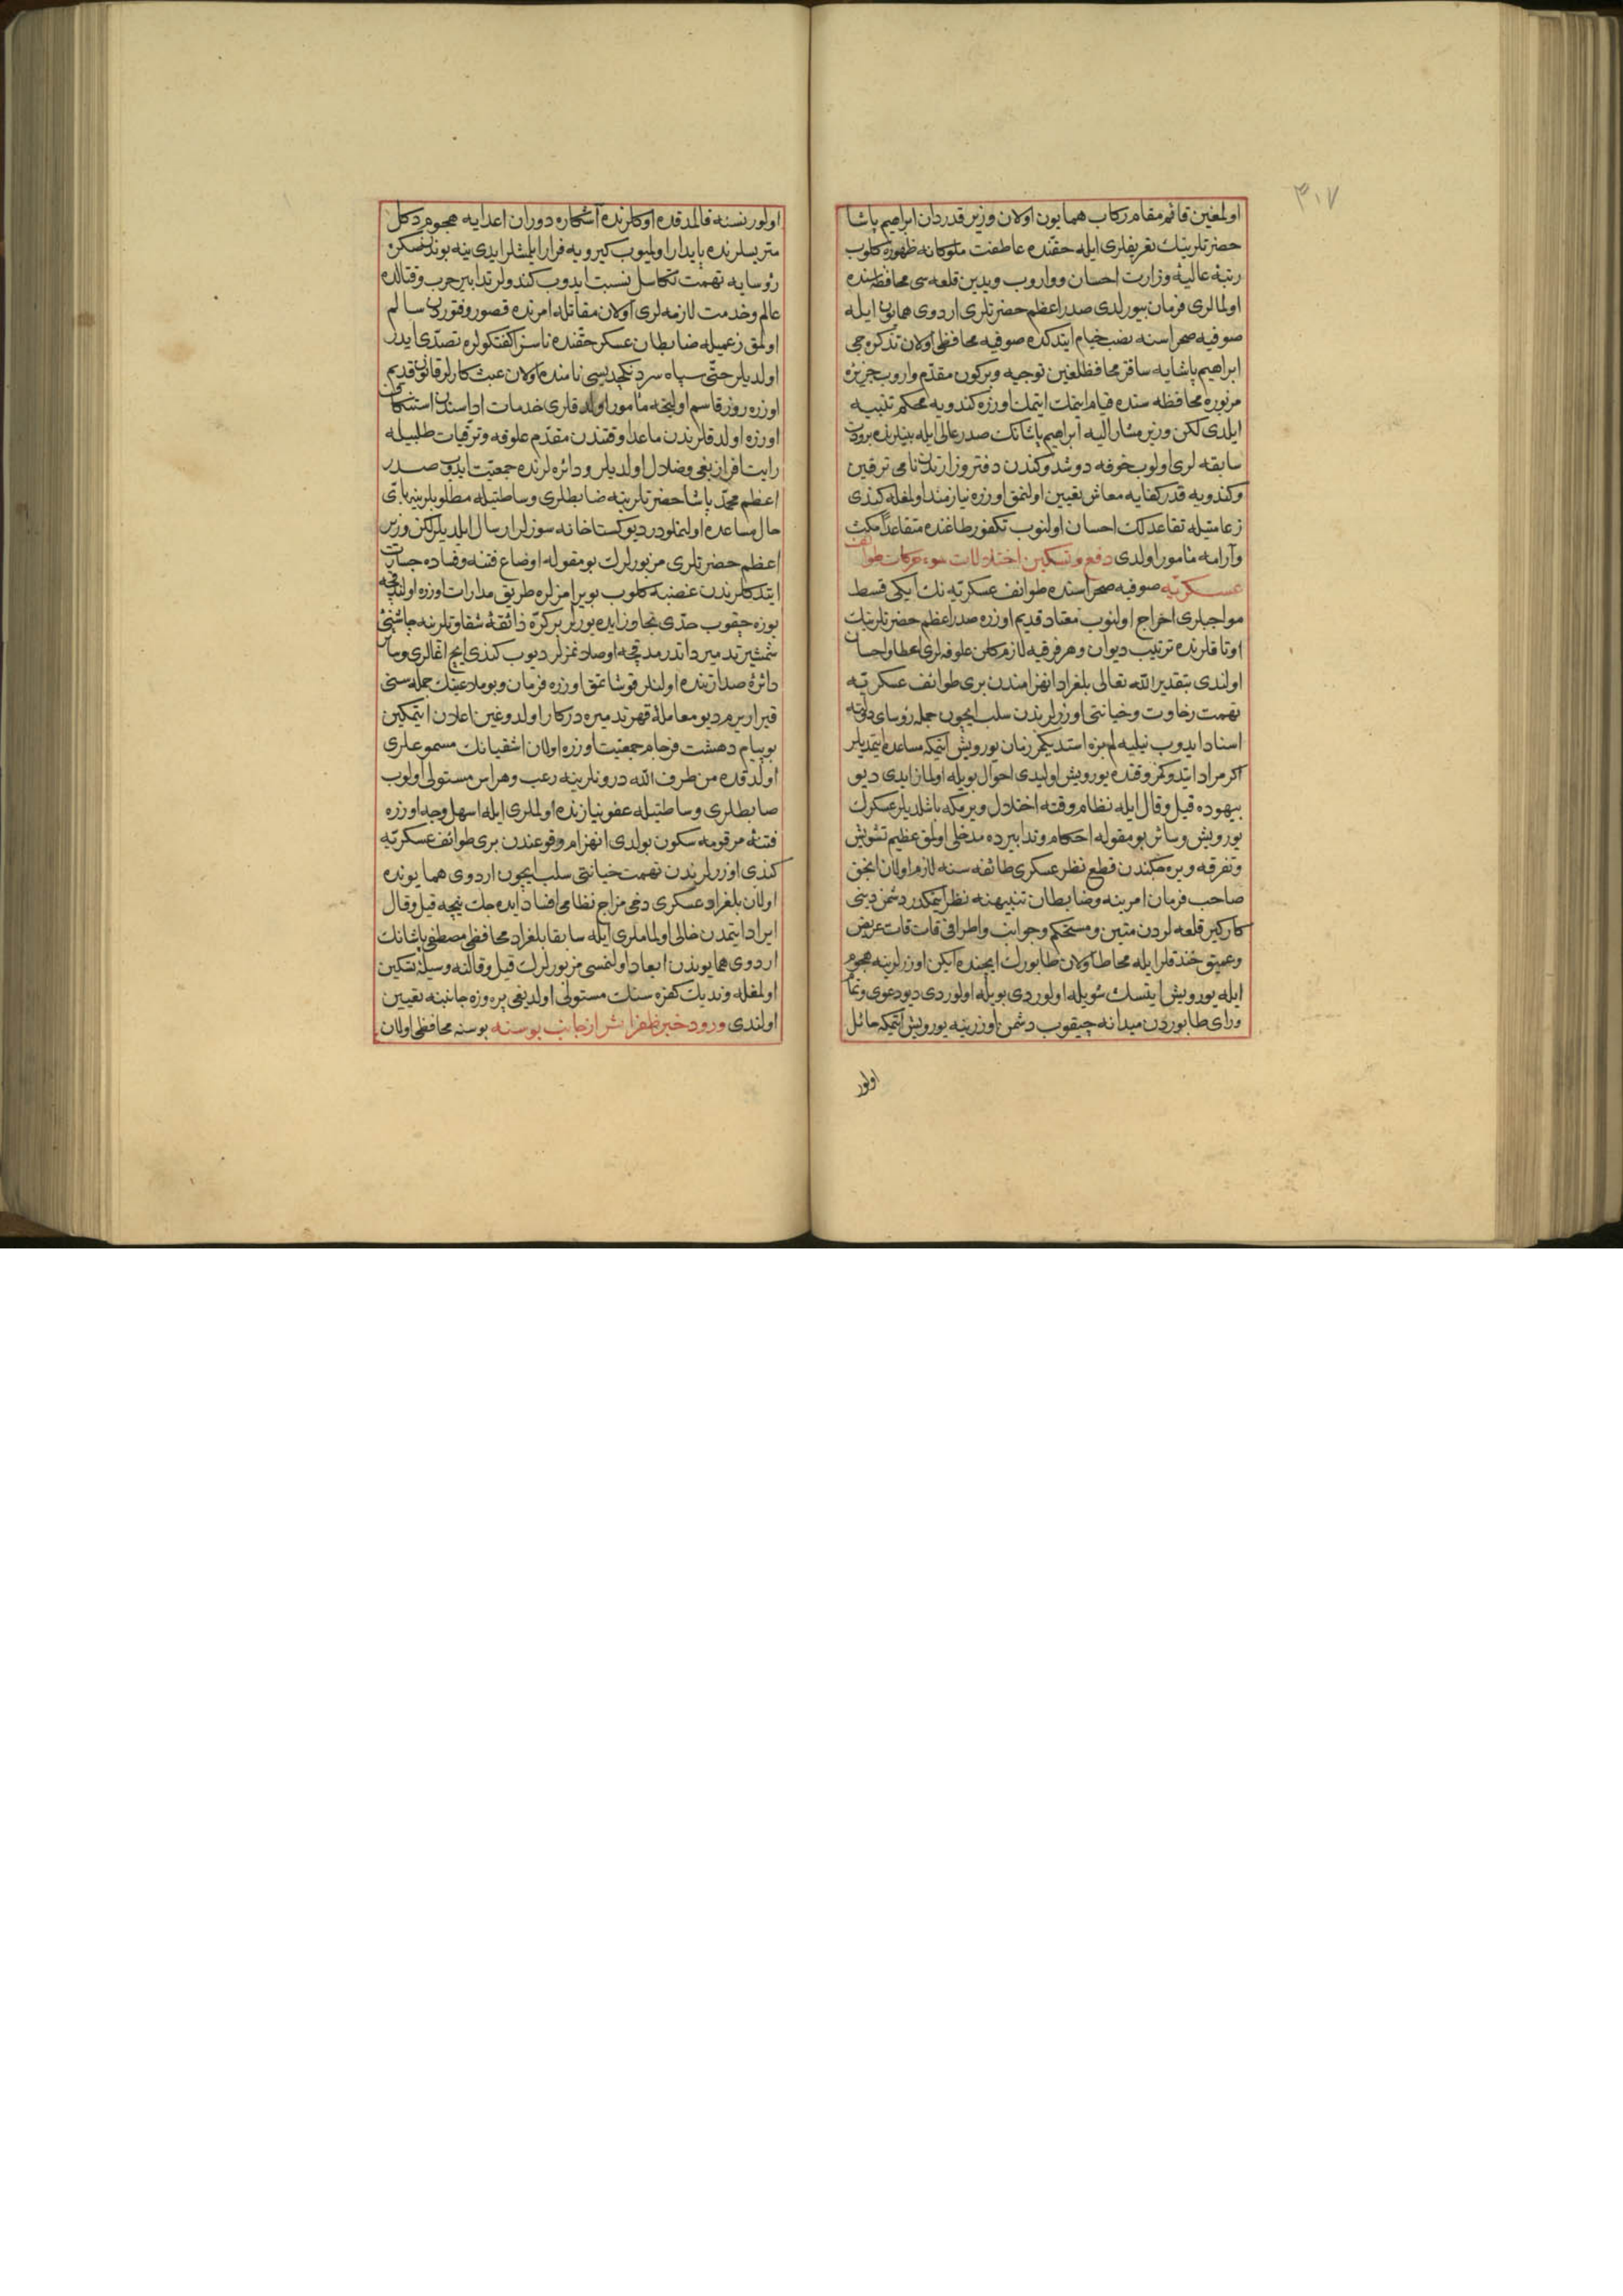 ٣٠٧
اولمغين قائم مقام ركاب همايون اولان وزير قدردان ابراهيم پاشا
حضرتلرينك تعريفلرى ايله حقنده عاطفت ملوكانه ظهوره كلوب
رتبۀ عاليۀ وزارت احسان وواروب ويدين قلعه سى محافظه سنده
اولمالرى فرمان بيورلدى صدر اعظم حضرتلرى اردوى همايون ايله
صوفيه صحراسنه نصب خيام ايتدكده صوفيه محافظى اولان تذكره جى
ابراهيم پاشايه ساقز محافظلغين توجيه وبركون مقدم واروب جزيرۀ
مزبوره محافظه سنده قيام ايتمك اوزره كندويه محكم تنبيه
ايلدى لكن وزير مشار اليه ابراهيم پاشانك صدر عالى ايله بينلرنده برودت
سابقه لرى اولوب خوفه دوشد وكندن دفتر وزارتدن نامى ترقين
وكندويه قدر كفايه معاش تعيين اولنمق اوزره نيازمند اولمغله كندى
زعامتيله تقاعدلك احسان اولنوب تكفور طاغنده متقاعداً مكث
وآرامه مأمور اولدى دفع وتسكين اختلالات سوء حركات طوائف
عسكريه صوفيه صحراسنده طوائف عسكريه نك ايكى قسط
مواجبلرى اخراج اولنوب معتاد قديم اوزره صدر اعظم حضرتلرينك
اوتاقلرنده ترتيب ديوان وهر فرقيه لازم كلن علوفه لرى اعطا واحسان
اولندى بتقدير الله تعالى بلغراد انهزامندن برى طوائف عسكريه
تهمت رخاوت وخيانتى اوزرلرندن سلب ايچون جمله رؤساى دولته
اسناد ايدوب نيليه لم بزه استديكمز زمان يورويش ايتمكه مساعده ايتمديلر
اكر مراد ايتدوكمز وقتده يورويش اوليدى احوال بويله اولماز ايدى ديو
بيهوده قيل وقال ايله نظام وقته اختلال ويرمكه باشلديلر عسكرك
يورويش وسائر بومقوله احكام وتدابيرده مدخلى اولمق عظيم تشويش
وتفرقه ويره جكندن قطع نظر عسكرى طائفه سنه لازم اولان انجق
صاحب فرمان امرينه وضابطان تنبيهنه نظر ايتمكدر دشمن دينى
كاركير قلعه لردن متين ومستحكم وجوانب واطرافى قات قات عريض
وعميق خندقلر ايله محاط اولان طابورك ايچنده ايكن اوزرلرينه هجوم
ايله يورويش ايتسك شويله اولوردى بويله اولوردى ديو دعوى
وراى طابوردن ميدانه چيقوب دشمن اوزرينه يورويش ايتمكه حائل
اولور
اولور نسنه قالمدقده اوكلرنده آشكاره دوران اعدايه هجوم دكل
متريسلرنده پايدار اولميوب كيرويه فرار ايلمشلر ايدى ينه بوندن صكره
رؤسايه تهمت تكاسل نسبت ايدوب كندولر تدابير حرب وقتالده
عالم وخدمت لازمه لرى اولان مقاتله امرنده قصور وفتوردن سالم
اولمق زعميله ضابطان عسكر حقنده ناسزا كفتكولره تصدى ايدر
اولديلر حتى سپاه سردنكچديسى نامنده اولان عبث كارلر قانون قديم
اوزره روز قاسم اولنجه مأمور اولدقلرى خدمات اداسندن استنكاف
اوزره اولدقلرندن ماعدا وقتندن مقدم علوفه وترقيات طلبيله
رايت افراز بغى وضلال اولديلر ودائره لرنده جمعيت ايدوب صدر
اعظم محمد پاشا حضرتلرينه ضابطلرى وساطتيله مطلوبلرينه باقى
حال مساعده اولنملودر ديو كستاخانه سوزلر ارسال ايلديلر لكن وزير
اعظم حضرتلرى مزبورلرك بومقوله اوضاع فتنه وفساده جسارت
ايتدكلرندن غضبه كلوب بويرامزلره طريق مدارات اوزره اولندقجه
يوزه چقوب حدى تجاوز ايده يورلر بر كره ذائقۀ شقاوتلرينه چاشنئ
شمشير تدمير داتدرمدقجه اوصلانمزلر ديوب كندى ايچ اغالرى وسائر
دائرۀ صدارتنده اولنلر قوشانمق اوزره فرمان وبو ملاعينك جمله سنى
قيرارير م ديو معاملۀ قهر تدميره دركار اولدوغين اعلان ايتمكين
بو پيام دهشت فرجام جمعيت اوزره اولان اشقيانك مسموعلرى
اولدقده من طرف الله درونلرينه رعب وهراس مستولى اولوب
ضابطلرى وساطتيله عفو نيازنده اولملرى ايله اسهل وجه اوزره
فتنۀ مرقومه سكون بولدى انهزام وقوعندن برى طوائف عسكريه
كندى اوزرلرندن تهمت خيانتى سلب ايچون اردوى همايونده
اولان بلغراد عسكرى دخى مزاج نظامى افساد ايده جك نيچه قيل وقال
ايراد ايتمدن خالى اولماملرى ايله سابقا بلغراد محافظى مصطفى پاشانك
اردوى همايوندن ابعاد اولنمسى مزبورلرك قيل وقالنه وسيلۀ تسكين
اولمغله ونديك كفره سنك مستولى اولديغى پروزه جانبنه تعيين
اولندى ورود خبر ظفر اثر از جانب بوسنه بوسنه محافظى اولان